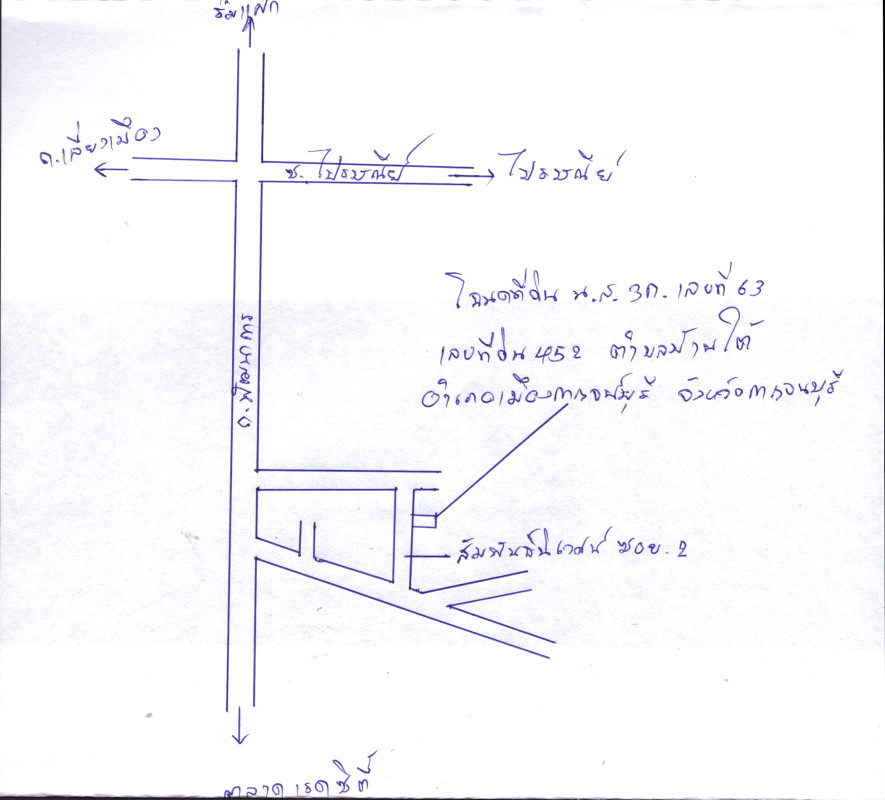 ถ.เลี่ยงเมือง
ซ. ไปรษณีย์
ไปรษณีย์
โฉนดที่ดิน น.ส. 3ก. เลขที่ 63
เลขที่ดิน 452 ตำบลบ้านใต้
อำเภอเมืองกาญจนบุรี จังหวัดกาญจนบุรี
ถ.พัฒนาการ
สัมพันธ์นิเวศน์ ซอย. 2
ตลาดเรดซิตี้